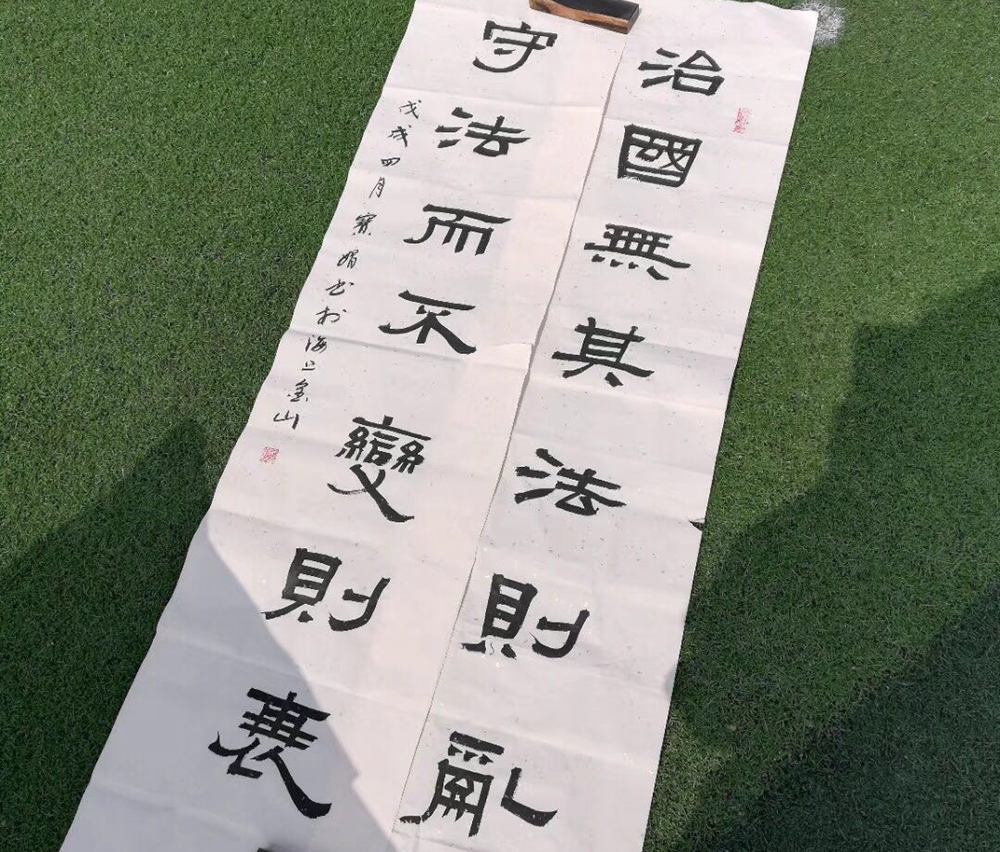 治國無其法則亂
守法而不變則衰
戊戌四月寶娟书於海上金山